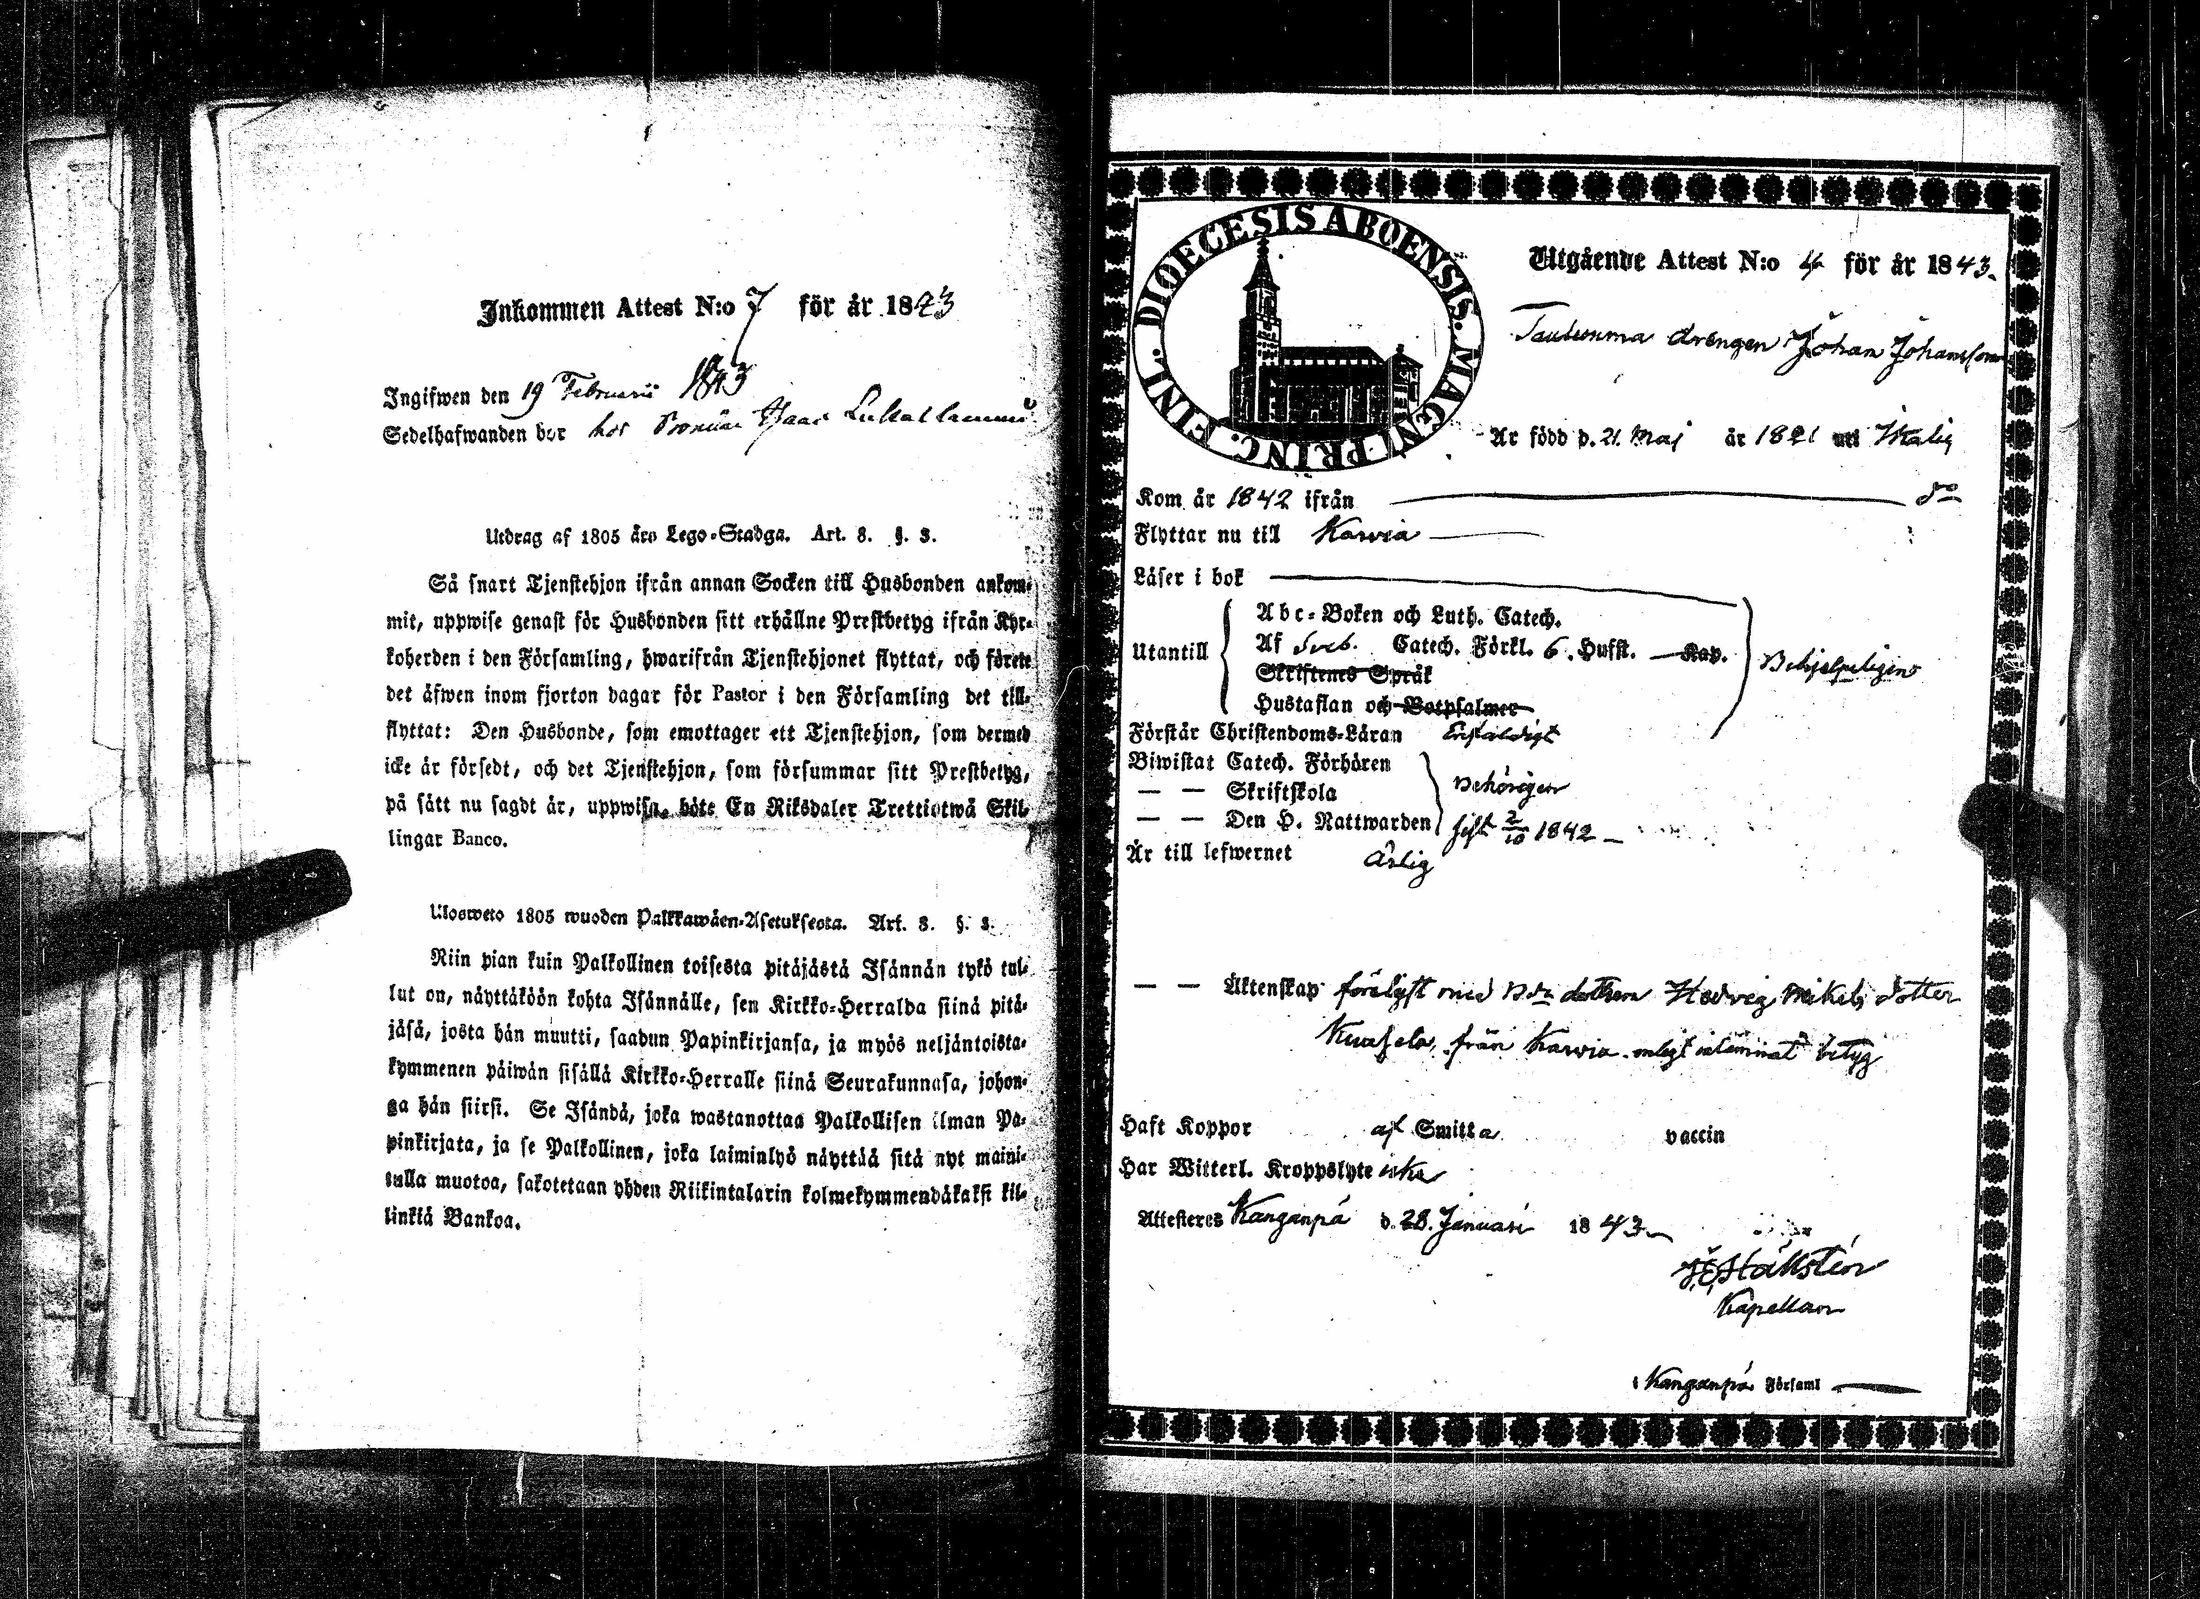 Inkommen Attest N:o 7 för år 1843
Ingifwen den 19 Februarii 1843
Sedelhafwanden bor hos Isaac
Utdrag af 1805 års Lego-Stadga. Art. 8. §. 3.
Så snart Tjenstehjon ifrån annan Socken till Husbonden ankom-
mit, uppwise genast för Husbonden sitt erhållne Prestbetyg ifrån Kyr-
koherden i den Församling, hwarifrån Tjenstehjonet flyttat, och förete
det äfwen inom fjorton dagar för Pastor i den Församling det till-
flyttat: Den Husbonde, som emottager ett Tjenstehjon, som dermed
icke är försedt, och det Tjenstehjon, som försummar sitt Prestbetyg,
på sätt nu sagdt är, uppwisa, böte En Riksdaler Trettiotwå Skil-
lingar Banco.
Ulosweto 1805 wuoden Palkkawäen-Asetuksesta. Art. 8. §. 3.
Niin pian kuin Palkollinen toisesta pitäjästä Isännän tykö tul-
lut on, näyttäköön kohta Isännälle, sen Kirkko-Herralda siinä pitä-
jäsä, josta hän muutti, saadun Papinkirjansa, ja myös neljäntoista-
kymmenen päiwän sisällä Kirkko-Herralle siinä Seurakunnasa, johon-
ga hän siirsi. Se Isändä, joka wastanottaa Palkollisen ilman Pa-
pinkirjata, ja se Palkollinen, joka laiminlyö näyttää sitä nyt maini-
tulla muotoa, sakotetaan yhden Riikintalarin kolmekymmendäkaksi kil-
linkiä Bankoa.
DIOECESIS ABOENSIS. MAGNI PRINC. FINL.
Utgående Attest N:o 4 för år 1843.
drengen Johan Johansson
Är född d. 21 Maj år 1821 uti Ikalis
Kom år 1842 ifrån do
Flyttar nu till Karvia
Läser i bok
Utantill
Abc-Boken och Luth. Catech.
Af Sveb. Catech. Förkl. 6. Hufst. Kap.
Skriftenes Språk
Hustaflan och Botpsalmer
Behjelpeligen
Förstår Christendoms-Läran Enfaldigt
Biwistat Catech. Förhören
— — Skriftskola Behörigen
— — Den H. Nattwarden sist 2/10 1842
Är till lefwernet Ärlig
— — Äktenskap förelyst med dottren Hedvig Mikels dotter
från Karvia betyg
Haft Koppor af Smitta vaccin
Har Witterl. Kroppslyte icke
Attesteres Kanganpä d. 28. Januari 1843
Hällsten
Kapellan
i Kanganpä Församl